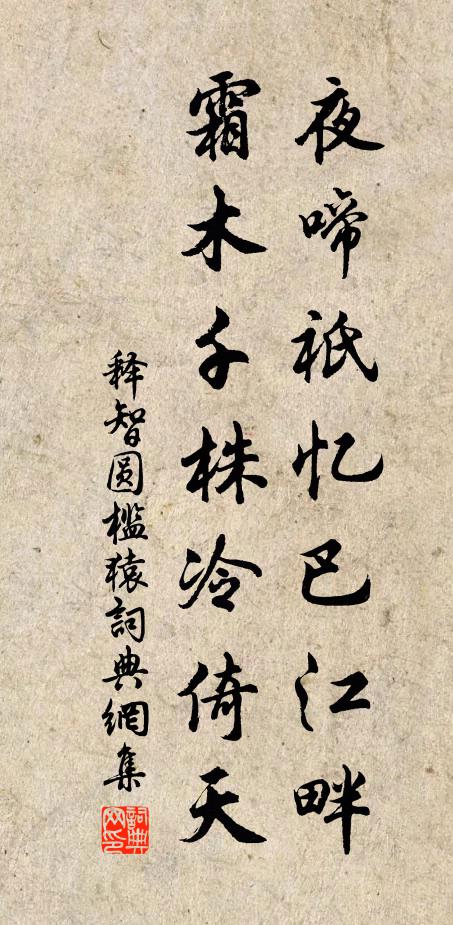 夜啼祇忆巴江畔
霜木千株冷倚天
释智圆槛猿詞典網集
詞典網印